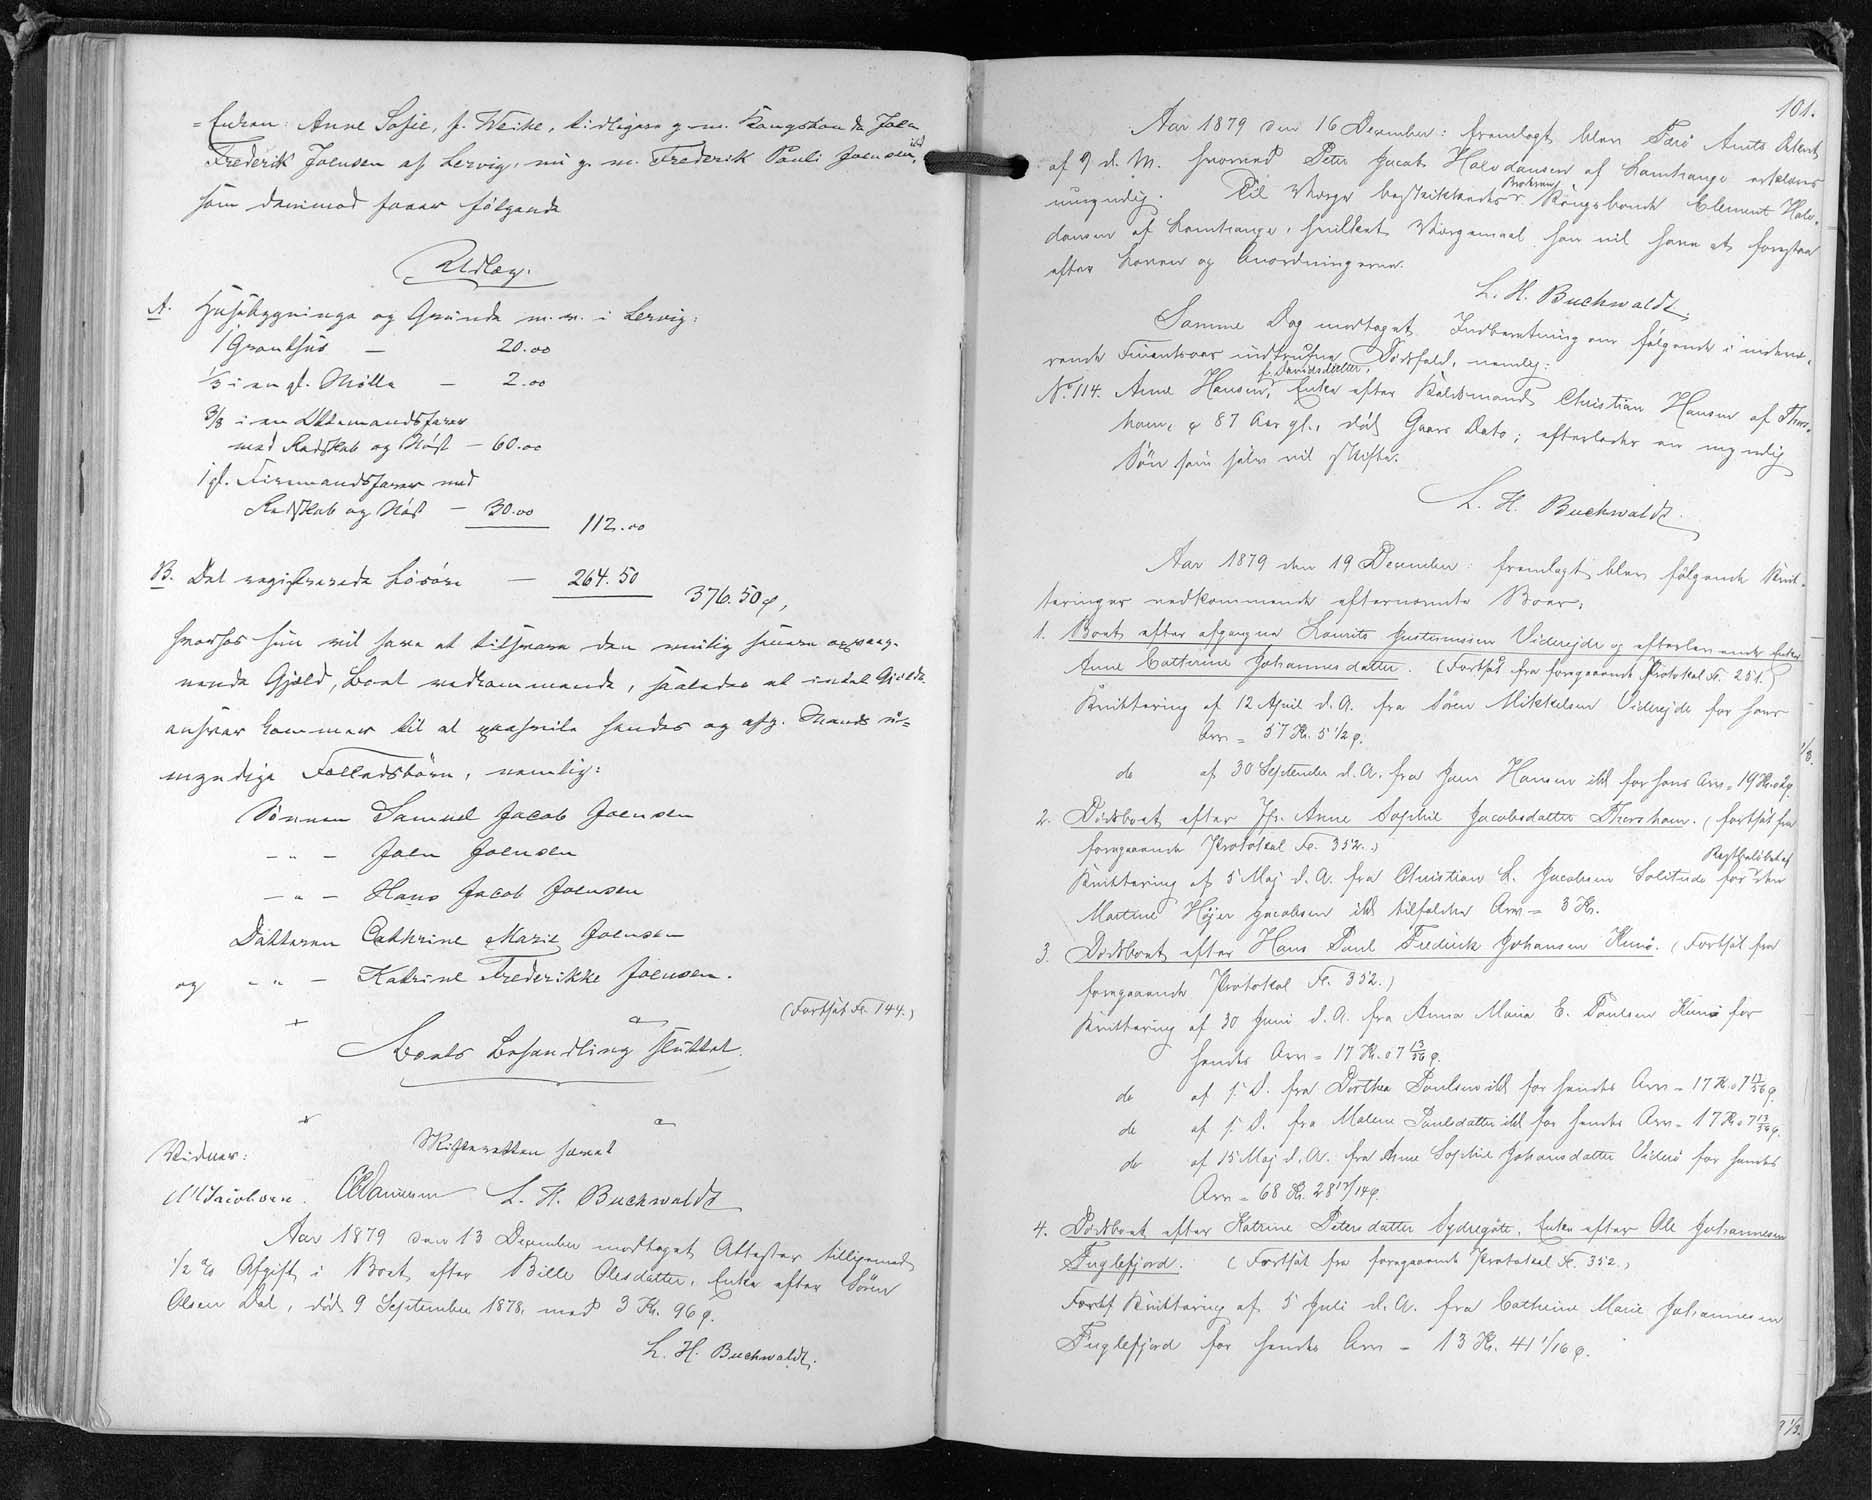 =Enken: Anne Sofie, f. Weihe, tidligere g. m. Kongsbonde Joen
Frederik Joensen af Lervig, nu g. m. Frederik Pauli Joensen, ibd
som derimod faaer følgende
Udlæg:
A. Huusbygninger og Grunde m. v. i Lervig:
1 Grønthus — 20.00
1/3 i en gl. Mølle — 2.00
3/8 i en Ottemandsfarer
med Redskab og Nøst — 60.00
1 gl. Firemandsfarer med
Redskab og Nøst — 30.00 112.00
B. Det registrerede Løsøre — 264.50 376.50 ø,
hvorhos hun vil have at tilsvare den mulig senere opkom-
mende Gjæld, Boet vedkommende, saaledes at intet Gjælds
ansvar kommer til at paahvile hendes og afg. Mands u=
myndige Fællesbørn, nemlig:
Sønnen Samuel Jacob Joensen
– " – Joen Joensen
– " – Hans Jacob Joensen
Datteren Cathrine Marie Joensen
og – " – Katrine Frederikke Joensen.
(Fortsat Fo. 144.)
Boets Behandling sluttet.
Skifteretten hævet
Vidner:
Jacobsen. L. H. Buchwaldt
Aar 1879 den 13 December modtaget Attester tilligemed
1/2 % Afgift i Boet efter Bille Olesdatter, Enke efter Sören
Olsen Dal, død 9 September 1878, med 3 Kr. 96 ø.
L. H. Buchwaldt.
101.
Aar 1879 den 16 December: fremlagt blev Færø Amts Resol.
af 9 d. M. hvorved Peter Jacob Halvdansen af Lamhauge erklæres
umyndig. Til Værge beskikkedes Broderen Kongsbonde Clement Halv-
dansen af Lamhauge, hvilket Værgemaal han vil have at forestaa
efter Loven og Anordningerne.
L. H. Buchwaldt.
Samme Dag modtaget Indberetning om følgende i indevæ-
rende Finantsaar indtrufne Dødsfald, nemlig:
No. 114. Anne Hansen, f. Davidsdatter, Enke efter Christian Hansen af Thors-
havn, 87 Aar gl., død Gaars Dato; efterlader en myndig
Søn som selv vil skifte.
L. H. Buchwaldt.
Aar 1879 den 19 December: fremlagt blev følgende Kvit-
teringer vedkommende efternævnte Boer:
1. Boet efter afgangne Laurits Justinussen Viderejde og efterlevende Enke
Anne Catherine Johannesdatter. (Fortsat fra foregaaende Protokol Fo. 251.)
Kvittering af 12 April d. A. fra Sören Mikkelsen Viderejde for hans
Arv = 57 Kr. 5 1/2 ø.
do af 30 September d. A. fra Joen Hansen ibd for hans Arv = 19 Kr.
2. Dødsboet efter Jfr. Anne Sophie Jacobsdatter Thorshavn. (fortsat fra
foregaaende Protokol Fo. 352.)
Kvittering af 5 Maj d. A. fra Christian L. Jacobsen Solitude for Restbeløbet af den
Martine Højer Jacobsen ibd tilfaldne Arv = 3 Kr.
3. Dødsboet efter Hans Paul Frederik Johansen Kunø. (Fortsat fra
foregaaende Protokol Fo. 352.)
Kvittering af 30 Juni d. A. fra Anna Maria E. Poulsen Kunø for
hendes Arv = 17 Kr. 07 13/56 ø.
do af s. D. fra Dorthea Poulsen ibd for hendes Arv = 17 Kr. 07 13/56 ø.
do af s. D. fra Malene Poulsdatter ibd for hendes Arv = 17 Kr. 07 13/56 ø.
do af 15 Maj d. A. fra Anne Sophie Johansdatter Viderø for hendes
Arv = 68 Kr. 28 13/14 ø.
4. Dødsboet efter Katrine Petersdatter Sydregöte, Enke efter Ole Johannesen
Fuglefjord. (Fortsat fra foregaaende Protokol Fo. 352.)
Kvittering af 5 Juli d. A. fra Cathrine Marie Johannesen
Fuglefjord for hendes Arv = 13 Kr. 41 1/16 ø.